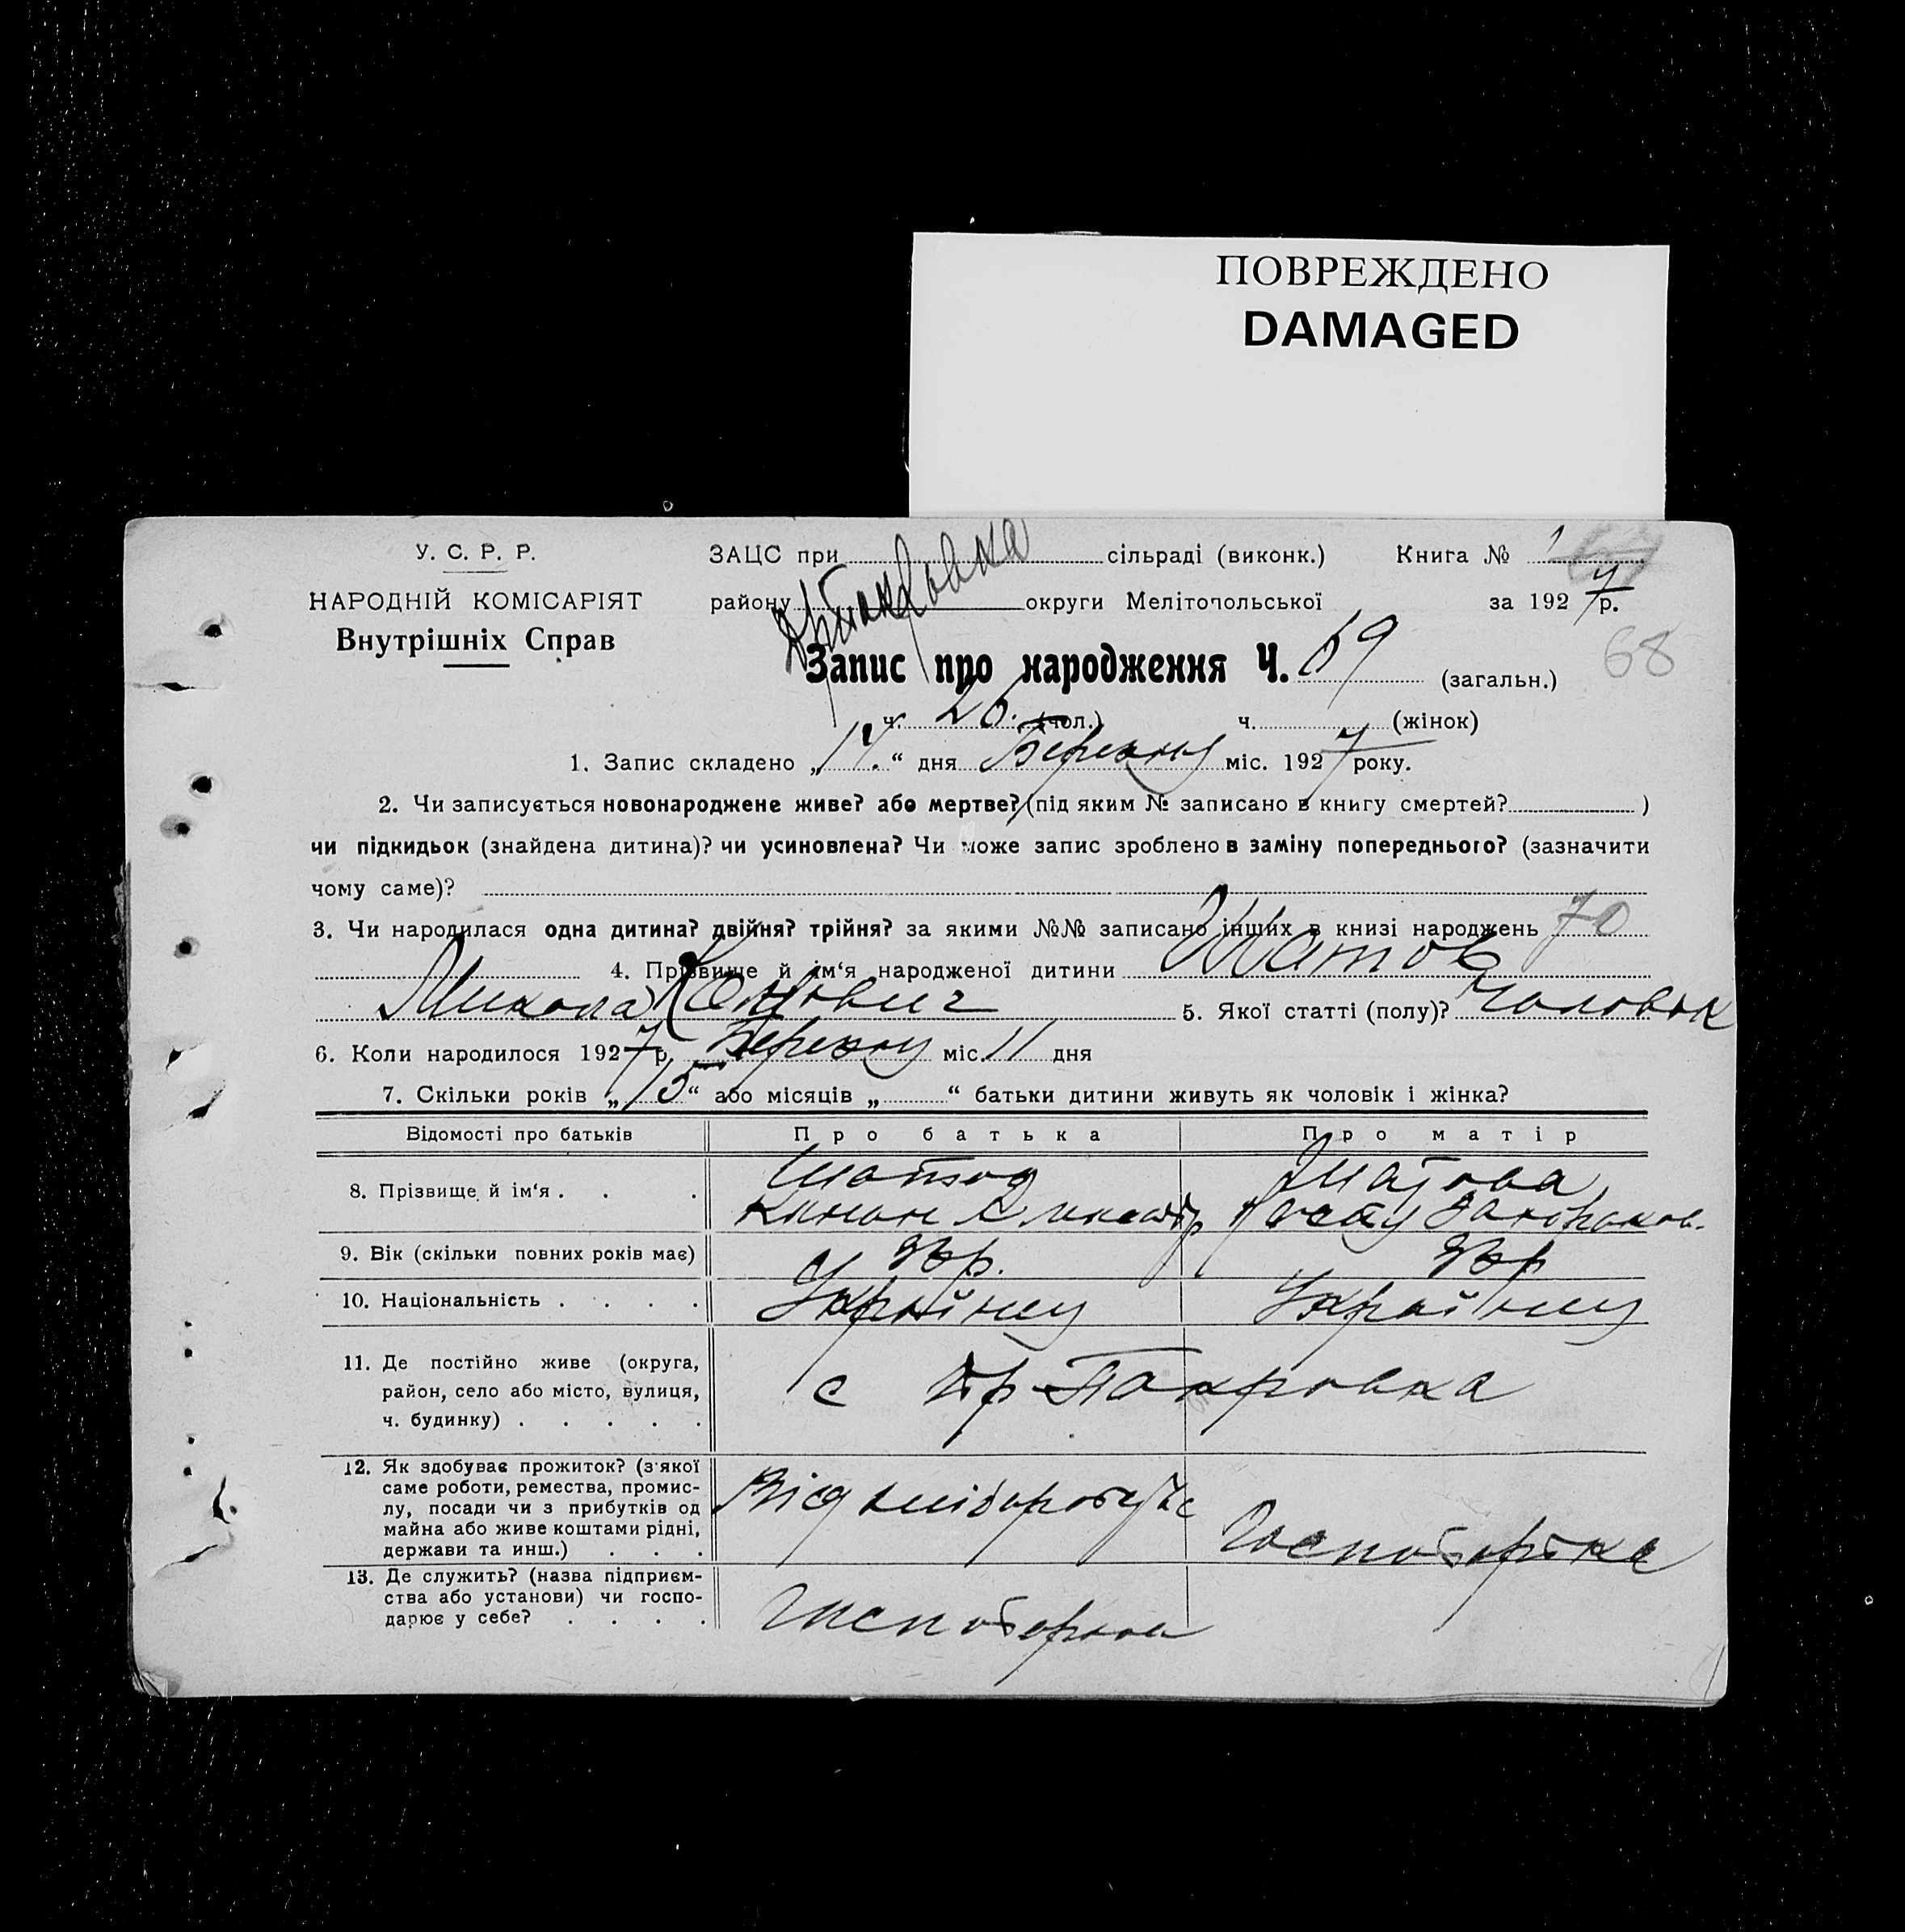 ПОВРЕЖДЕНО
DAMAGED
У. С. Р. Р.
НАРОДНІЙ КОМІСАРІЯТ
Внутрішніх Справ
ЗАЦС при сільраді (виконк.) Книга № 1
району округи Мелітопольської за 1927 р.
Запис про народження Ч. 69 (загальн.) 68
ч. 26. (чол.) ч. (жінок)
1. Запис складено „14.“ дня Березня міс. 1927 року.
2. Чи записується новонароджене живе? або мертве? (під яким № записано в книгу смертей? )
чи підкидьок (знайдена дитина)? чи усиновлена? Чи може запис зроблено в заміну попереднього? (зазначити
чому саме)?
3. Чи народилася одна дитина? двійня? трійня? за якими №№ записано інших в книзі народжень 70
4. Прізвище й ім‘я народженої дитини Шатов
Микола 5. Якої статті (полу)? Чоловік
6. Коли народилося 1927 р. Березня міс. 11 дня
7. Скільки років „15“ або місяців „ “ батьки дитини живуть як чоловік і жінка?
Відомості про батьків Про батька Про матір
8. Прізвище й ім‘я . . . Шатов Шатова
9. Вік (скільки повних років має)
10. Національність . . . . Українец Українец
11. Де постійно живе (округа,
район, село або місто, вулиця, с Покровка
ч. будинку) . . . . .
12. Як здобуває прожиток? (з якої
саме роботи, ремества, промис-
лу, посади чи з прибутків од Від
майна або живе коштами рідні,
держави та инш.) . . .
13. Де служить? (назва підприєм-
ства або установи) чи госпо-
дарює у себе? . . . .